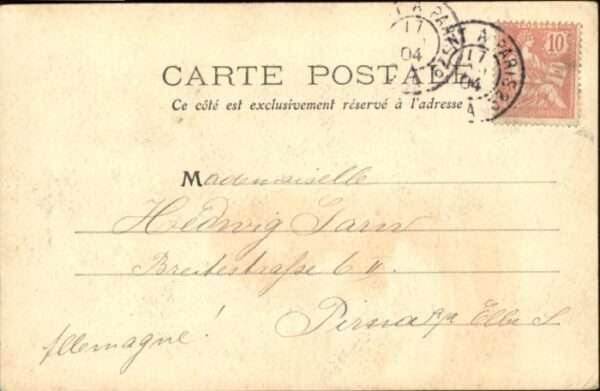 A PARIS
17
04
10
A PARIS
17
04
CARTE POSTALE
Ce côté est exclusivement réservé à l'adresse
Mademoiselle
Hedwig
Breitestraße 6 II.
Pirna a/a Elbe S.
Allemagne!